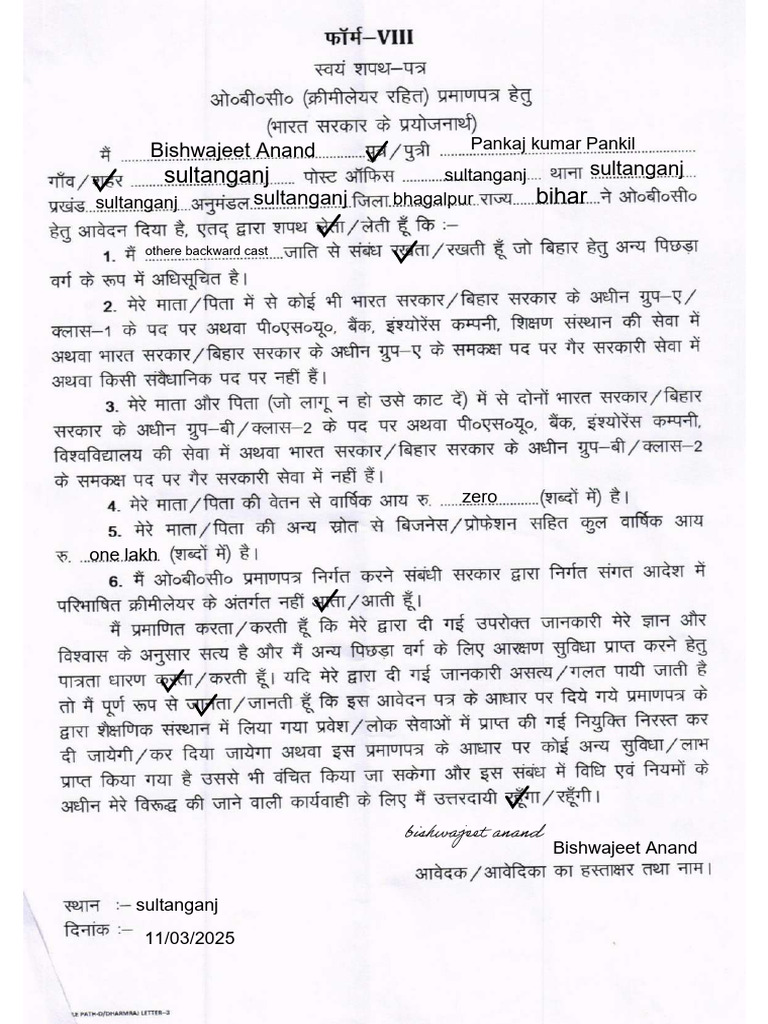 फॉर्म–VIII
स्वयं शपथ–पत्र
ओ०बी०सी० (क्रीमीलेयर रहित) प्रमाणपत्र हेतु
(भारत सरकार के प्रयोजनार्थ)
मैं Bishwajeet Anand पुत्र/पुत्री Pankaj kumar Pankil
गाँव/शहर sultanganj पोस्ट ऑफिस sultanganj थाना sultanganj
प्रखंड sultanganj अनुमंडल sultanganj जिला bhagalpur राज्य bihar ने ओ०बी०सी०
हेतु आवेदन दिया है, एतद् द्वारा शपथ लेता/लेती हूँ कि :–
1. मैं othere backward cast जाति से संबंध रखता/रखती हूँ जो बिहार हेतु अन्य पिछड़ा
वर्ग के रूप में अधिसूचित है।
2. मेरे माता/पिता में से कोई भी भारत सरकार/बिहार सरकार के अधीन ग्रुप–ए/
क्लास–1 के पद पर अथवा पी०एस०यू०, बैंक, इंश्योरेंस कम्पनी, शिक्षण संस्थान की सेवा में
अथवा भारत सरकार/बिहार सरकार के अधीन ग्रुप–ए के समकक्ष पद पर गैर सरकारी सेवा में
अथवा किसी संवैधानिक पद पर नहीं हैं।
3. मेरे माता और पिता (जो लागू न हो उसे काट दें) में से दोनों भारत सरकार/बिहार
सरकार के अधीन ग्रुप–बी/क्लास–2 के पद पर अथवा पी०एस०यू०, बैंक, इंश्योरेंस कम्पनी,
विश्वविद्यालय की सेवा में अथवा भारत सरकार/बिहार सरकार के अधीन ग्रुप–बी/क्लास–2
के समकक्ष पद पर गैर सरकारी सेवा में नहीं हैं।
4. मेरे माता/पिता की वेतन से वार्षिक आय रु. zero (शब्दों में) है।
5. मेरे माता/पिता की अन्य स्रोत से बिजनेस/प्रोफेशन सहित कुल वार्षिक आय
रु. one lakh (शब्दों में) है।
6. मैं ओ०बी०सी० प्रमाणपत्र निर्गत करने संबंधी सरकार द्वारा निर्गत संगत आदेश में
परिभाषित क्रीमीलेयर के अंतर्गत नहीं आता/आती हूँ।
मैं प्रमाणित करता/करती हूँ कि मेरे द्वारा दी गई उपरोक्त जानकारी मेरे ज्ञान और
विश्वास के अनुसार सत्य है और मैं अन्य पिछड़ा वर्ग के लिए आरक्षण सुविधा प्राप्त करने हेतु
पात्रता धारण करता/करती हूँ। यदि मेरे द्वारा दी गई जानकारी असत्य/गलत पायी जाती है
तो मैं पूर्ण रूप से जानता/जानती हूँ कि इस आवेदन पत्र के आधार पर दिये गये प्रमाणपत्र के
द्वारा शैक्षणिक संस्थान में लिया गया प्रवेश/लोक सेवाओं में प्राप्त की गई नियुक्ति निरस्त कर
दी जायेगी/कर दिया जायेगा अथवा इस प्रमाणपत्र के आधार पर कोई अन्य सुविधा/लाभ
प्राप्त किया गया है उससे भी वंचित किया जा सकेगा और इस संबंध में विधि एवं नियमों के
अधीन मेरे विरूद्ध की जाने वाली कार्यवाही के लिए मैं उत्तरदायी रहूँगा/रहूँगी।
bishwajeet anand
Bishwajeet Anand
आवेदक/आवेदिका का हस्ताक्षर तथा नाम।
स्थान :– sultanganj
दिनांक :–
11/03/2025
LE PATH-D/DHARMRAJ LETTER-2